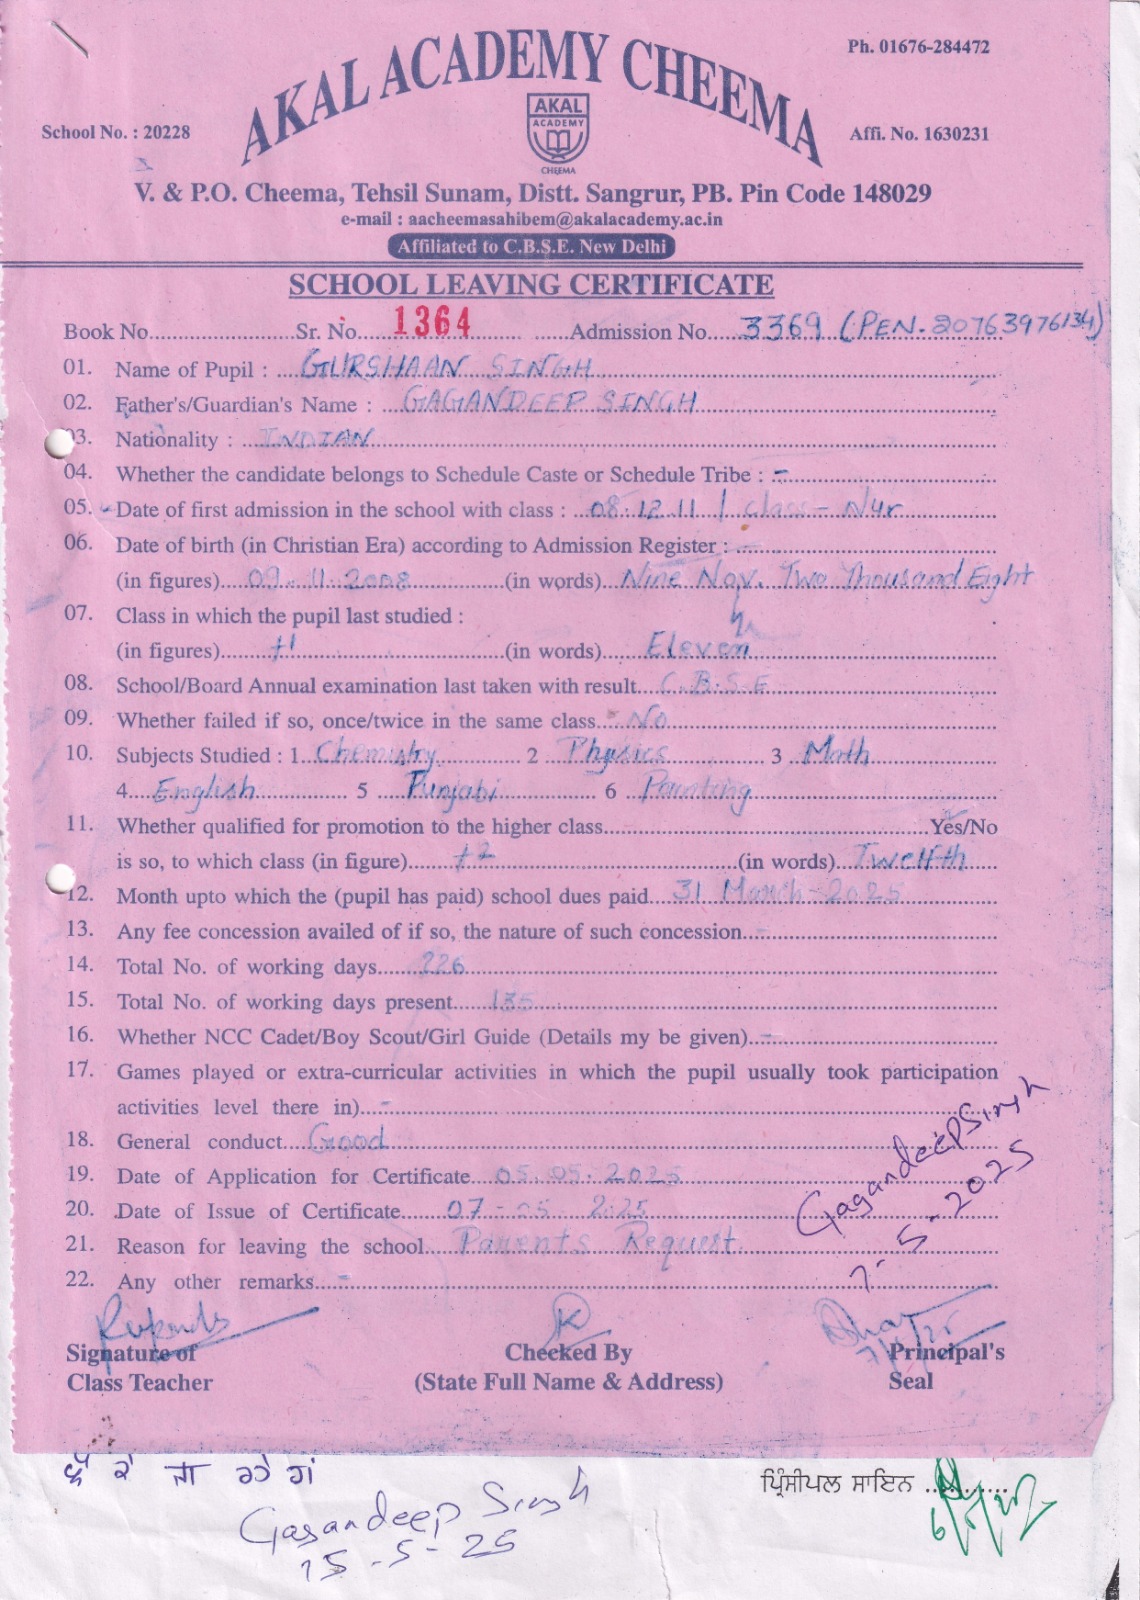 AKAL ACADEMY CHEEMA
Ph. 01676-284472
School No. : 20228
AKAL
ACADEMY
CHEEMA
Affi. No. 1630231
V. & P.O. Cheema, Tehsil Sunam, Distt. Sangrur, PB. Pin Code 148029
e-mail : aacheemasahibem@akalacademy.ac.in
Affiliated to C.B.S.E. New Delhi
SCHOOL LEAVING CERTIFICATE
Book No. Sr. No. 1364 Admission No. 3369 (PEN. 20763976134)
01. Name of Pupil : GURSHAAN SINGH
02. Father's/Guardian's Name : GAGANDEEP SINGH
03. Nationality : INDIAN
04. Whether the candidate belongs to Schedule Caste or Schedule Tribe : -
05. Date of first admission in the school with class : 08.12.11 / class - Nur
06. Date of birth (in Christian Era) according to Admission Register :
(in figures) 09.11.2008 (in words) Nine Nov. Two Thousand Eight
07. Class in which the pupil last studied :
(in figures) +1 (in words) Eleven
08. School/Board Annual examination last taken with result C.B.S.E
09. Whether failed if so, once/twice in the same class No
10. Subjects Studied : 1 Chemistry 2 Physics 3 Math
4 English 5 Punjabi 6 Painting
11. Whether qualified for promotion to the higher class Yes/No
is so, to which class (in figure) +2 (in words) Twelfth
12. Month upto which the (pupil has paid) school dues paid 31 March-2025
13. Any fee concession availed of if so, the nature of such concession -
14. Total No. of working days 226
15. Total No. of working days present 135
16. Whether NCC Cadet/Boy Scout/Girl Guide (Details my be given) -
17. Games played or extra-curricular activities in which the pupil usually took participation
activities level there in) -
18. General conduct Good
19. Date of Application for Certificate 05.05.2025
20. Date of Issue of Certificate 07-05 2025
21. Reason for leaving the school Parents Request
22. Any other remarks -
Gagandeep Singh
7-5-2025
Signature of
Class Teacher
Checked By
(State Full Name & Address)
Principal's
Seal
ਜਾ ਰਹੇ ਹਾਂ
ਪ੍ਰਿੰਸੀਪਲ ਸਾਇਨ
Gagandeep Singh
15-5-25